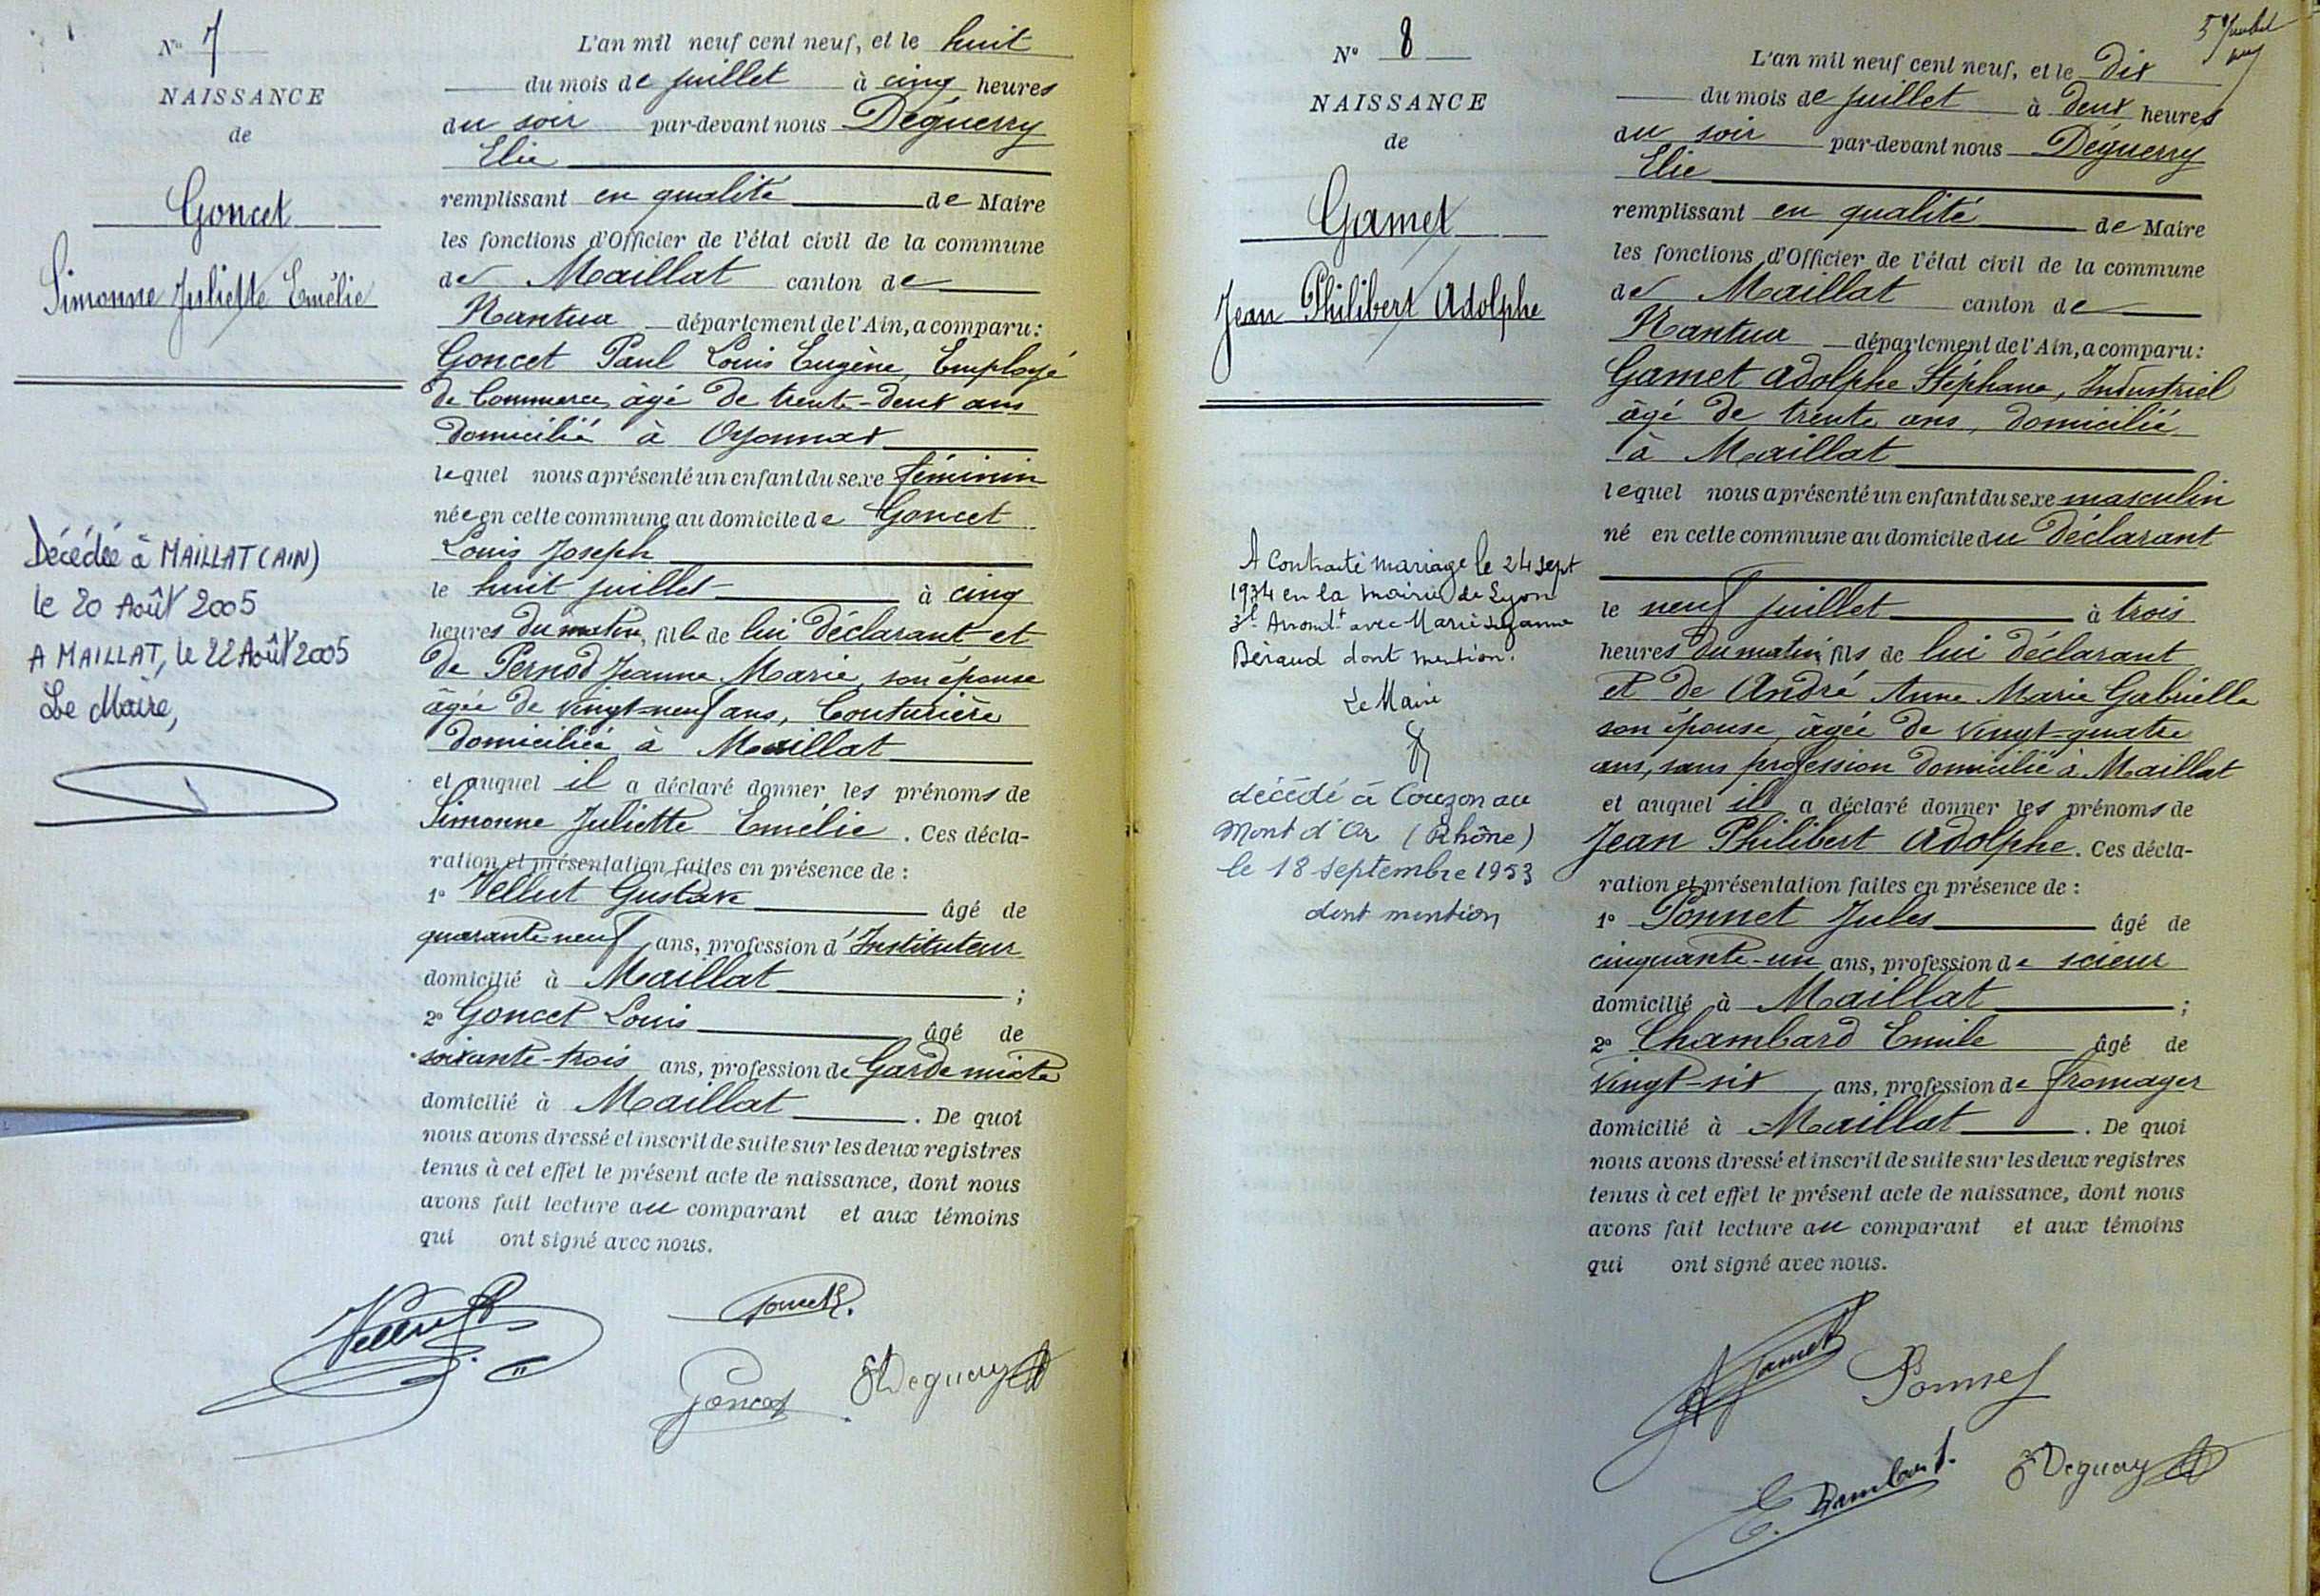 N° 7
NAISSANCE
de
Goncet
Simonne Juliette Emélie
Décédée à MAILLAT (AIN)
le 20 Août 2005
A MAILLAT, le 22 Août 2005
Le Maire,
L'an mil neuf cent neuf, et le huit
du mois de juillet à cinq heures
du soir par-devant nous Déguerry
Elie
remplissant en qualité de Maire
les fonctions d'Officier de l'état civil de la commune
de Maillat canton de
Nantua département de l'Ain, a comparu :
Goncet Paul Louis Eugène, Employé
de Commerce, âgé de trente-deux ans
domicilié à Oyonnax
lequel nous a présenté un enfant du sexe féminin
née en cette commune au domicile de Goncet
Louis Joseph
le huit juillet à cinq
heures du matin, fille de lui déclarant et
de Pernod Jeanne Marie, son épouse
âgée de vingt-neuf ans, Couturière
domiciliée à Maillat
et auquel il a déclaré donner les prénoms de
Simonne Juliette Emélie. Ces décla-
ration et présentation faites en présence de :
1° Vellut Gustave âgé de
quarante-neuf ans, profession d'Instituteur
domicilié à Maillat ;
2° Goncet Louis âgé de
soixante-trois ans, profession de Garde mixte
domicilié à Maillat. De quoi
nous avons dressé et inscrit de suite sur les deux registres
tenus à cet effet le présent acte de naissance, dont nous
avons fait lecture au comparant et aux témoins
qui ont signé avec nous.
Vellut
Goncet
Goncet
Deguerry
N° 8
NAISSANCE
de
Gamet
Jean Philibert Adolphe
A Contracté mariage le 24 Sept
1934 en la mairie de Lyon
3e Arrondt avec Marie Suzanne
Béraud dont mention.
Le Maire
décédé à Couzon au
Mont d'Or (Rhône)
le 18 septembre 1953
dont mention
L'an mil neuf cent neuf, et le dix
du mois de juillet à deux heures
du soir par-devant nous Déguerry
Elie
remplissant en qualité de Maire
les fonctions d'Officier de l'état civil de la commune
de Maillat canton de
Nantua département de l'Ain, a comparu :
Gamet Adolphe Stéphane, Industriel
âgé de trente ans, domicilié
à Maillat
lequel nous a présenté un enfant du sexe masculin
né en cette commune au domicile du Déclarant
le neuf juillet à trois
heures du matin, fils de lui déclarant
et de André Anne Marie Gabrielle
son épouse, âgée de vingt-quatre
ans, sans profession domicilié à Maillat
et auquel il a déclaré donner les prénoms de
Jean Philibert Adolphe. Ces décla-
ration et présentation faites en présence de :
1° Ponnet Jules âgé de
cinquante-un ans, profession de scieur
domicilié à Maillat ;
2° Chambard Emile âgé de
vingt-six ans, profession de fromager
domicilié à Maillat. De quoi
nous avons dressé et inscrit de suite sur les deux registres
tenus à cet effet le présent acte de naissance, dont nous
avons fait lecture au comparant et aux témoins
qui ont signé avec nous.
Gamet
Ponnet
Deguerry